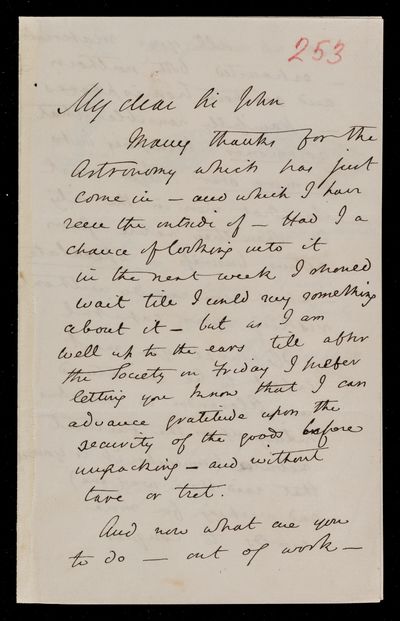 253
My dear Sir John
Many thanks for the
Astronomy which has just
come in — and which I have
seen the outside of — Had I a
chance of looking into it
in the next week I should
wait till I could say something
about it — but as I am
well up to the ears till after
the Society on Friday I prefer
letting you know that I can
advance gratitude upon the
security of the goods before
unpacking — and without
tare or tret.
And now what are you
to do — out of work —